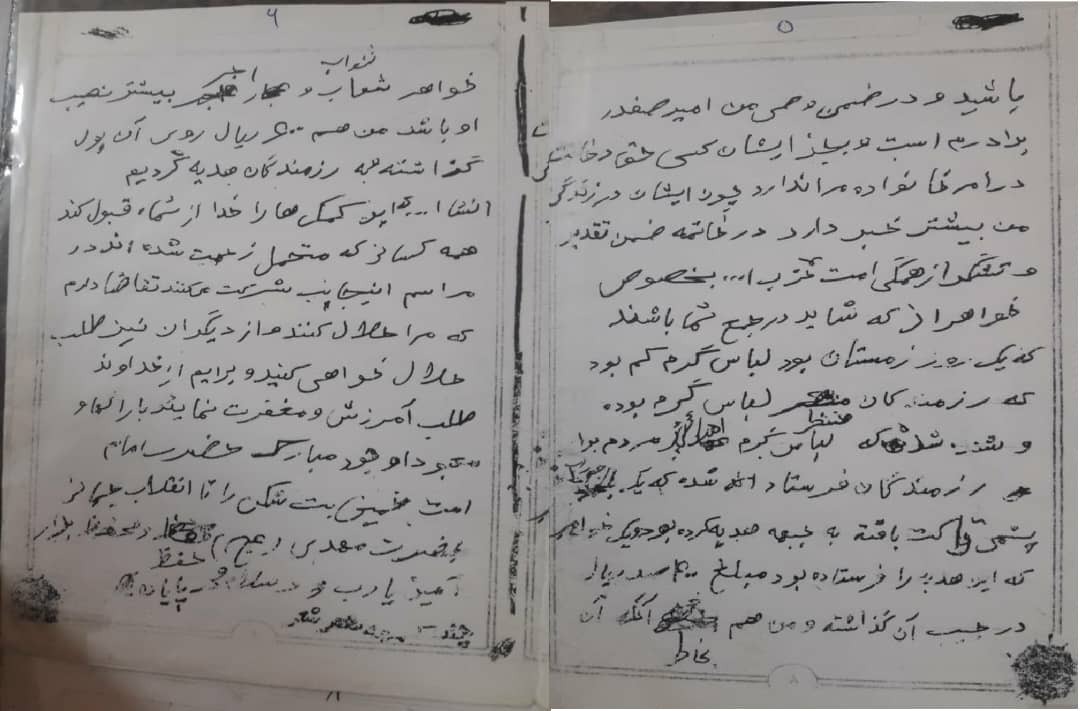 ۵
باشید و در ضمن وصی من امیر صفدر
برادرم است و بجز ایشان کسی حق دخالت
در امر خانواده مرا ندارد چون ایشان در زندگی
من بیشتر خبر دارد در خاتمه ضمن تقدیر
و تشکر از همگی امت حزب ا... بخصوص
خواهرانی که شاید در جمع شما باشند
که یک روز زمستان بود لباس گرم کم بود
که رزمندگان لباس گرم بوده
منتظر
و شنیده شد که لباس گرم اهدائی مردم برا
رزمندگان فرستاده شده که یک
پشمی کت بافته به جبهه هدیه کرده بود و یک خواهر
که این هدیه را فرستاده بود مبلغ ۴۰۰ صد ریال
در جیب آن گذاشته و من هم آنکه آن
بخاطر
۶
ثواب
خواهر شما و اجر بیشتر نصیب
او باشد من هم ۵۰۰ ریال روی آن پول
گذاشته به رزمندگان هدیه کردیم
انشا ا... این کمک ها را خدا از شما قبول کند
همه کسانی که متحمل زحمت شده اند در
مراسم اینجانب شرکت میکنند تقاضا دارم
که مرا حلال کنند و از دیگران نیز طلب
حلال خواهی کنید و برایم از خداوند
طلب آمرزش و مغفرت نمایند بارالها و
وجود مبارک حضرت امام
امت خمینی بت شکن را تا انقلاب جهانی
حضرت مهدی (عج) محفظ بدار
حفظ
آمین یا رب